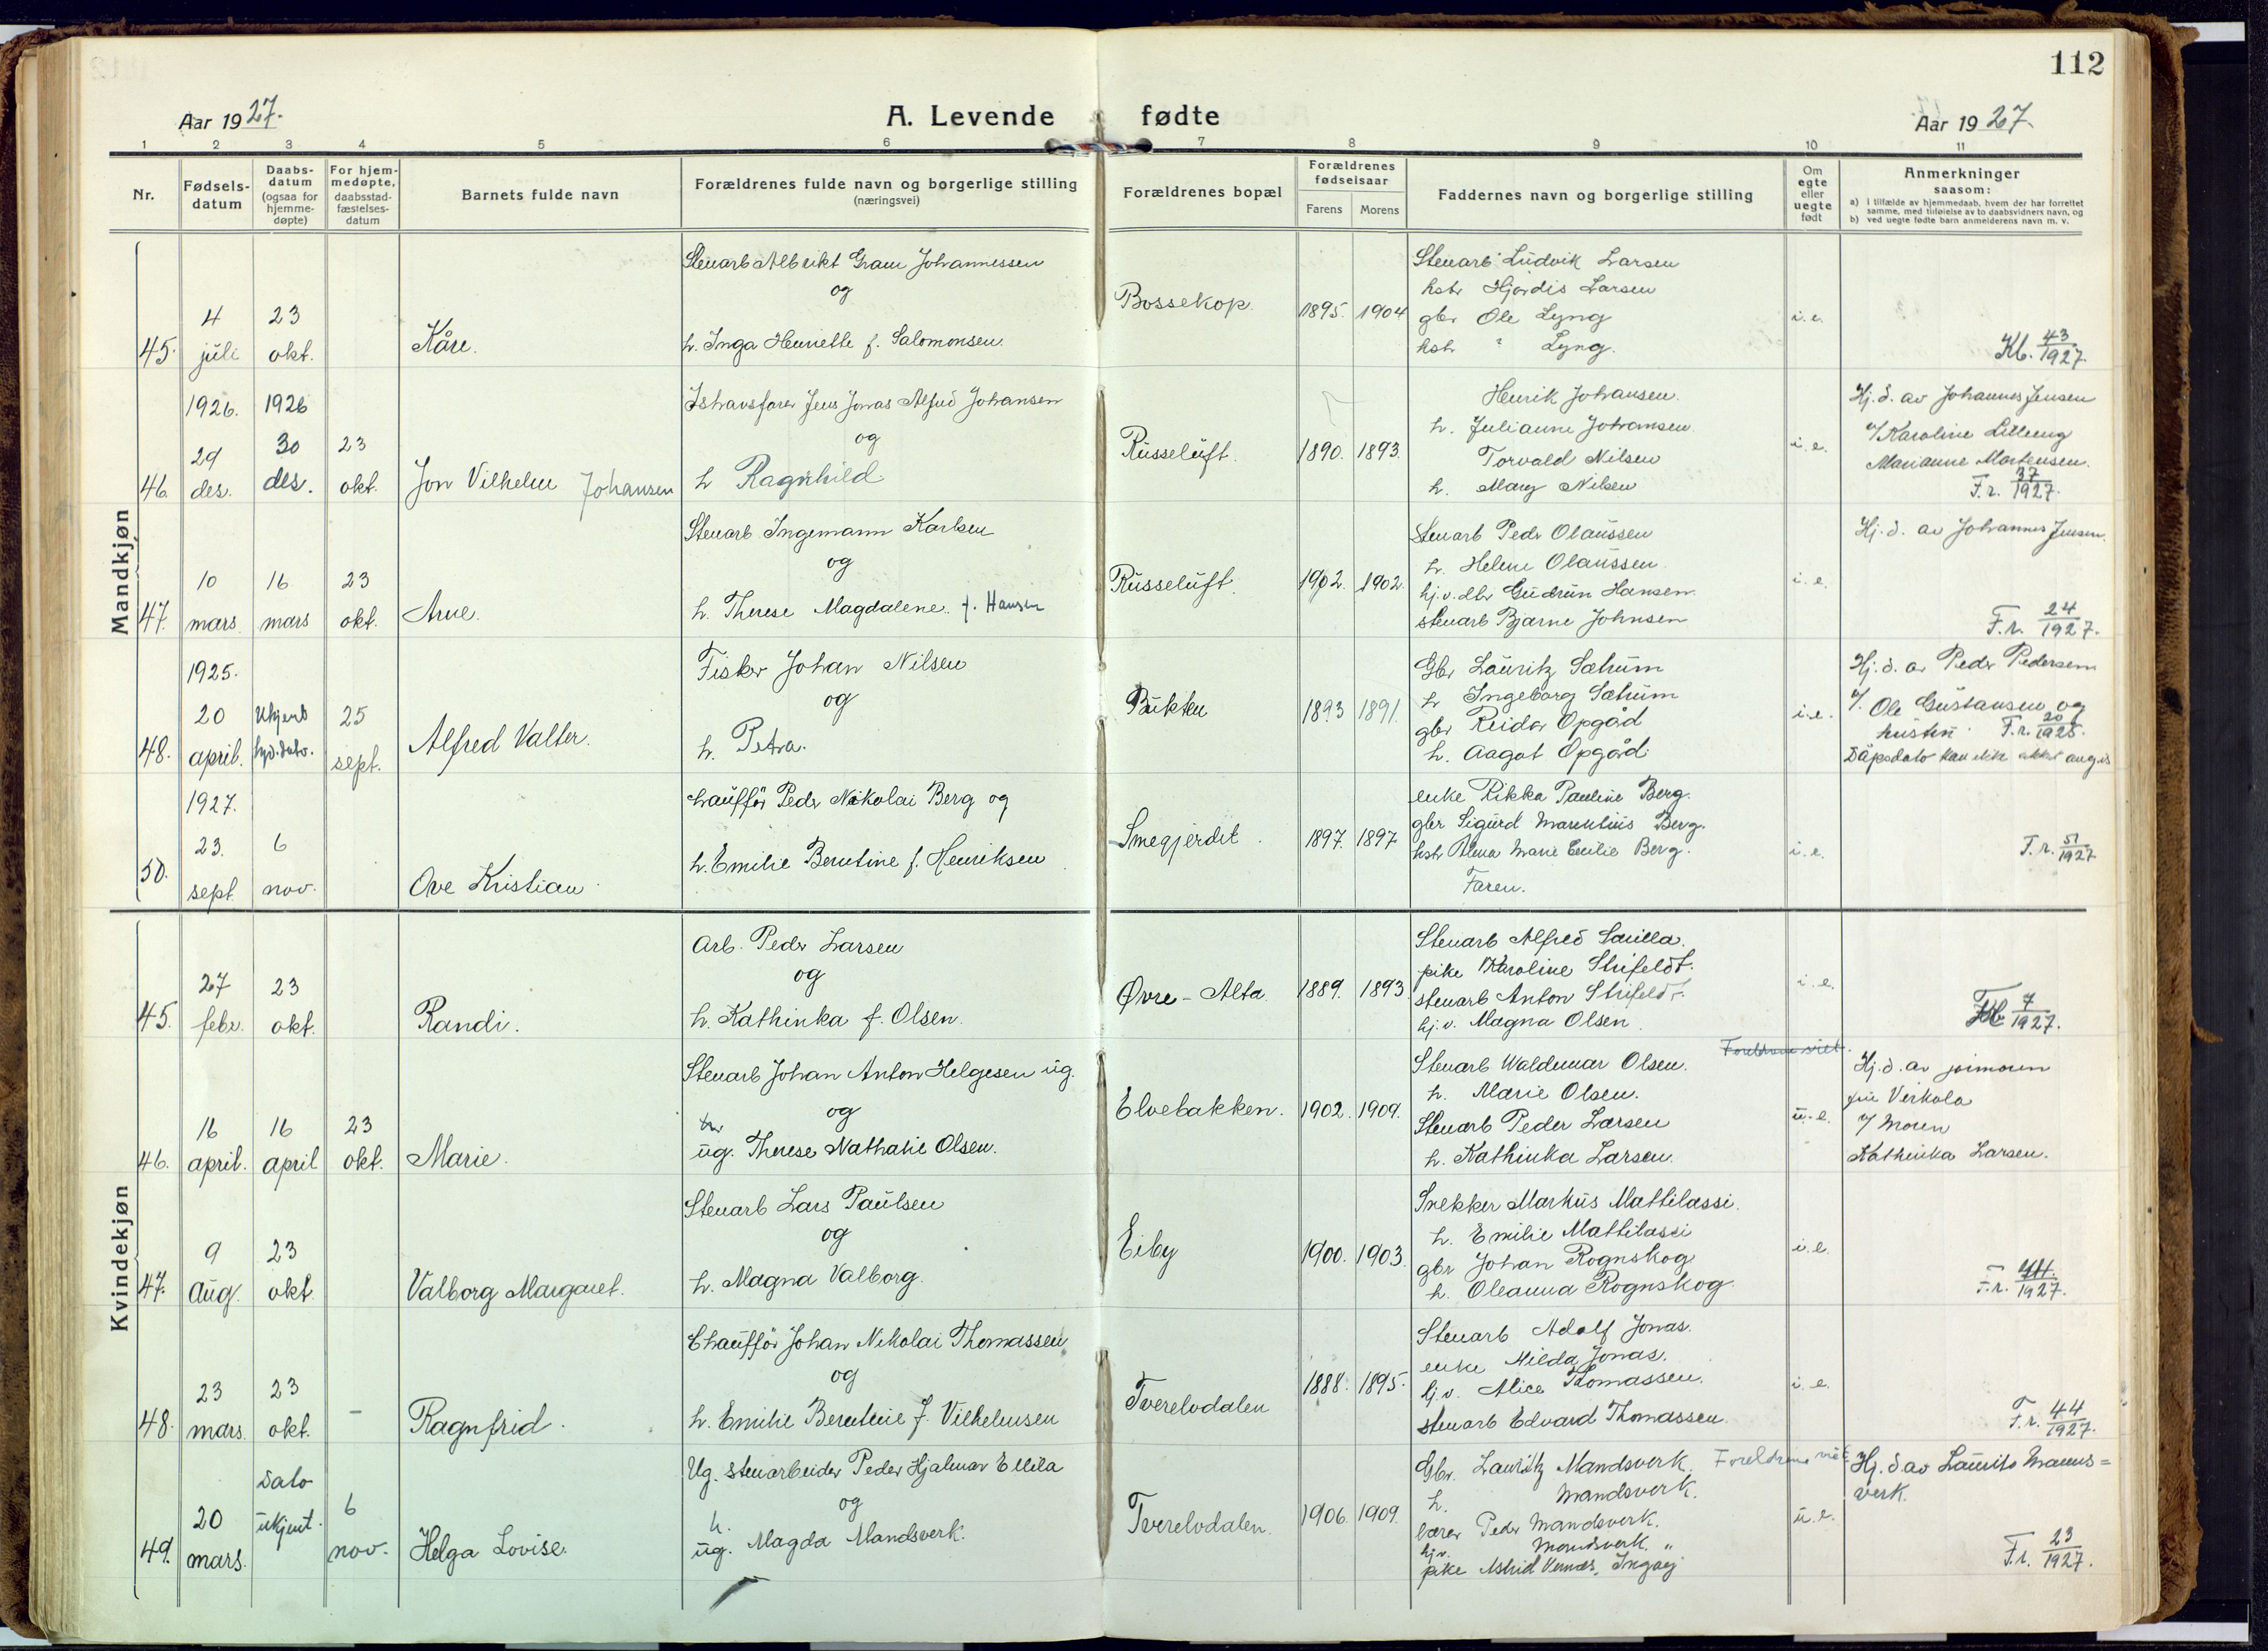 112
Aar 1927.
A. Levende fødte
Aar 1927.
1 2 3 4 5 6 7 8 9 10 11
Nr.
Fødsels-
datum
Daabs-
datum
(ogsaa for
hjemme-
døpte)
For hjem-
medøpte,
daabsstad-
fæstelses-
datum
Barnets fulde navn
Forældrenes fulde navn og borgerlige stilling
(næringsvei)
Forældrenes bopæl
Forældrenes
fødselsaar
Farens Morens
Faddernes navn og borgerlige stilling
Om
egte
eller
uegte
født
Anmerkninger
saasom:
a) i tilfælde av hjemmedaab, hvem der har forrettet
samme, med tilføielse av to daabsvidners navn, og
b) ved uegte fødte barn anmelderens navn m. v.
Mandkjøn
45. 4 juli
23 okt.
Kåre.
Stenarb Albrikt Gram Johannessen
og
h. Inga Henriette f. Salomonsen.
Bossekop.
1895. 1904
Stenarb. Ludvik Larsen
hstr Hjørdis Larsen
gbr Ole Lyng
hstr " Lyng.
i.e.
Kb. 43/1927.
46. 1926. 29 des.
1926 30 des.
23 okt.
Jon Vilhelm Johansen
Ishavsfarer Jens Jonas Alfred Johansen
og
h Ragnhild
Russeluft.
1890. 1893.
Henrik Johansen.
h. Julianne Johansen.
Torvald Nilsen
h. Mary Nilsen
i.e.
Hj. d. av Johannes Jensen
v/ Karoline Lilleeng
Marianne Mortensen.
F.r. 37/1927.
47. 10 mars
16 mars
23 okt.
Arne.
Stenarb Ingemann Karlsen
og
h. Therese Magdalene. f. Hansen
Russeluft.
1902. 1902.
Stenarb Peder Olaussen
h. Helene Olaussen
hj.v. dtr Gudrun Hansen.
stenarb Bjarne Johnsen
i.e.
Hj. d. av Johannes Jensen.
F.r. 24/1927.
48. 1925. 20 april.
Ukjent
25 sept.
Alfred Valter.
Fisker Johan Nilsen
og
h. Petra.
Bukten
1893 1891.
Gbr Lauritz Sætrum
h Ingeborg Sætrum
gbr Reidar Opgård
h. Aagot Opgård.
i.e.
Hj. d. av Peder Pedersen
v/. Ole Gustavsen og
hustru F.r. 20/1925.
Dåpsdato kan ikke angis
50. 1927. 23. sept.
6 nov.
Ove Kristian
chauffør Peder Nikolai Berg og
h. Emilie Berntine f. Henriksen
Smegjerdet.
1897. 1897
enke Rikka Pauline Berg.
gbr Sigurd Marentius Berg.
hstr Alma Marie Emilie Berg.
Faren.
i.e.
F.r. 51/1927
Kvindekjøn
45. 27 febr.
23 okt.
Randi.
Arb. Peder Larsen
og
h. Kathinka f. Olsen.
Øvre-Alta.
1889. 1893.
Stenarb Alfred Savilla.
pike Karoline Strifeldt.
stenarb Anton Strifeldt.
hj.v. Magna Olsen.
i.e.
7/1927.
46. 16 april.
16 april
23 okt.
Marie.
Stenarb Johan Anton Helgesen ug.
og
ug. Therese Nathalie Olsen.
Elvebakken.
1902. 1909.
Foreldrene viet.
Stenarb Waldemar Olsen.
h. Marie Olsen.
Stenarb Peder Larsen
h. Kathinka Larsen.
u.e.
Hj. d. av jormoren
fru Virkola
v/ Moren
Kathinka Larsen.
47. 9 Aug.
23 okt
Valborg Margaret.
Stenarb Lars Paulsen
og
h. Magna Valborg.
Eiby
1900. 1903.
Snekker Markus Mattilassi.
h. Emilie Mattilassi
gbr Johan Rognskog
h. Oleanna Rognskog.
i.e.
F.r. 44./1927.
48. 23 mars.
23 okt.
–
Ragnfrid.
Chauffør Johan Nikolai Thomassen
og
h. Emilie Berntine f. Vilhelmsen
Tverelvdalen
1888. 1895.
Stenarb Adolf Jonas.
enke Hilda Jonas.
hj.v. Alice Thomassen.
stenarb Edvard Thomassen.
i.e.
F.r. 44/1927.
49. 20 mars.
Dato ukjent.
6 nov.
Helga Lovise.
Ug. stenarbeider Peder Hjalmar Ellila
og
h.
ug. Magda Mandsverk.
Tverelvdalen.
1906. 1909.
Gbr. Lauritz Mandsverk. Foreldrene viet
h. Mandsverk.
lærer Peder Mandsverk.
hj.v. Mandsverk. "
pike Astrid Vernes, Ingøy.
u.e.
Hj. d av Laurits Manns=
verk.
F.r. 23/1927.